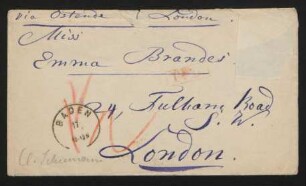 via Ostende London.
Miss
Emma Brandes
24, Fulham Road
S. W.
London.
BADEN
17
Cl. Schumann